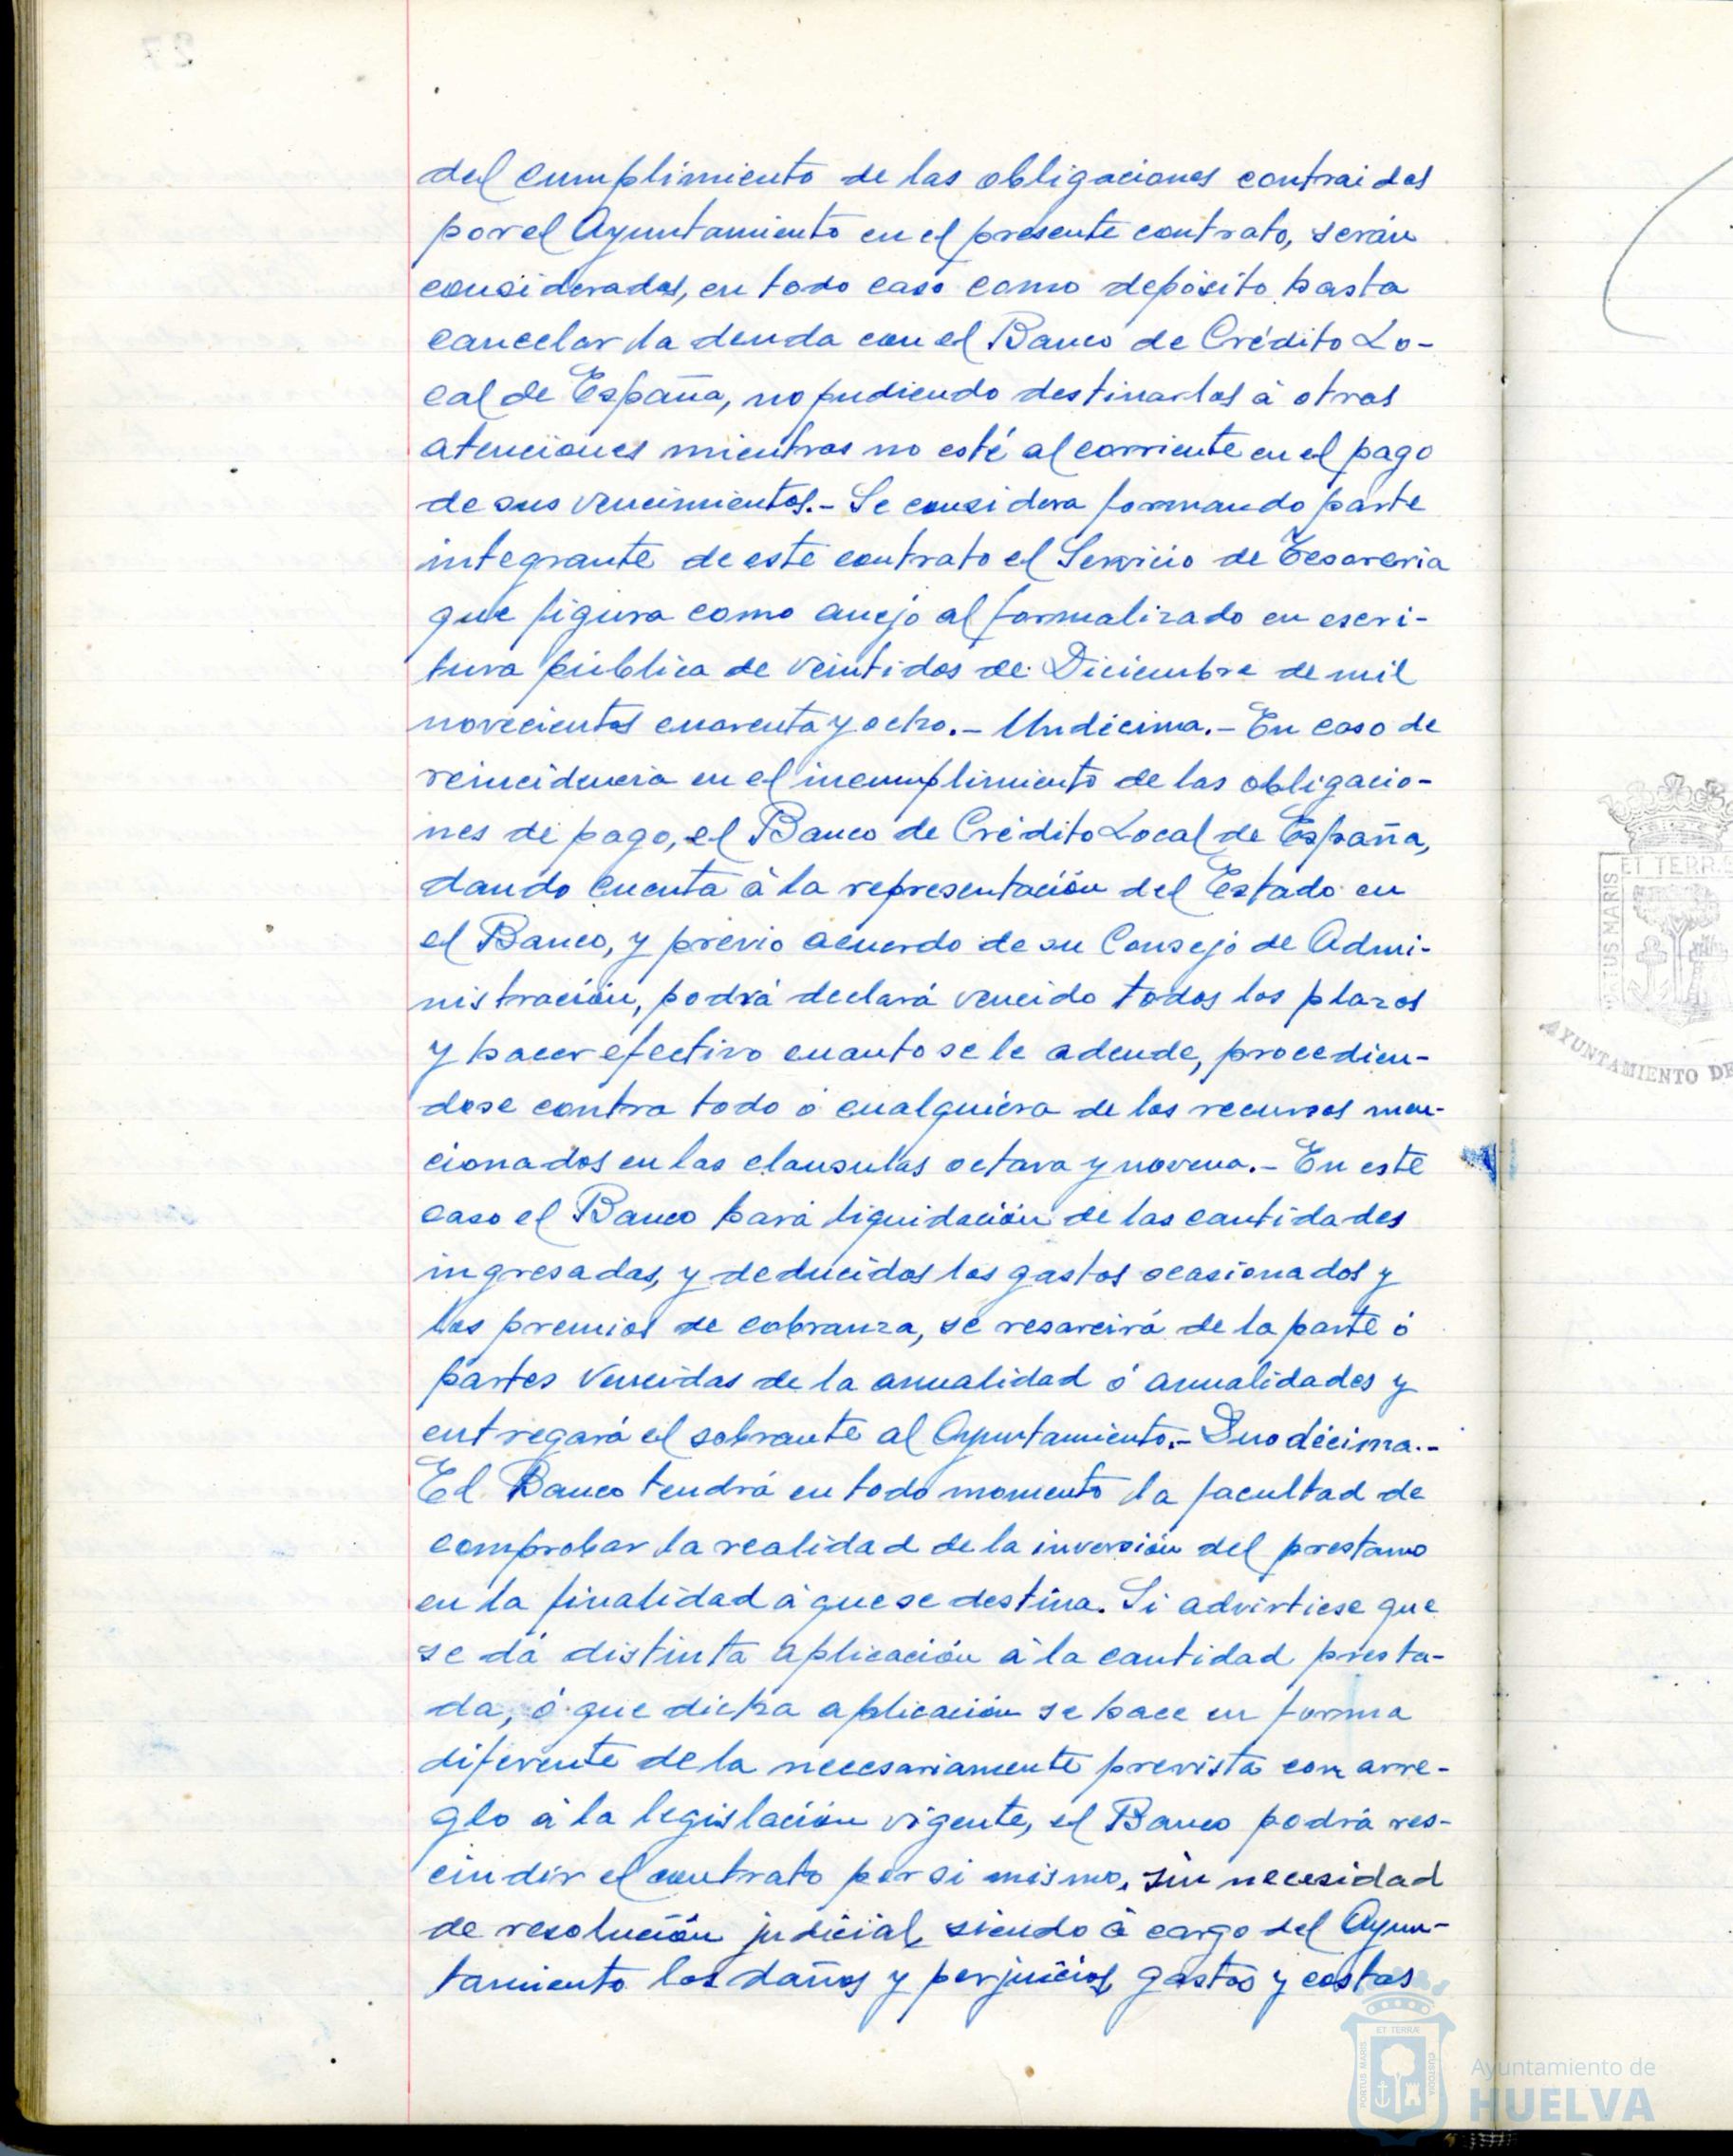 del cumplimiento de las obligaciones contraidas
por el Ayuntamiento en el presente contrato, serán
consideradas, en todo caso como depósito hasta
cancelar la deuda con el Banco de Crédito Lo-
cal de España, no pudiendo destinarlas á otras
atenciones mientras no esté al corriente en el pago
de sus vencimientos.- Se considera formando parte
integrante de este contrato el Servicio de Tesoreria
que figura como anejo al formalizado en escri-
tura pública de veintidos de Diciembre de mil
novecientos cuarenta y ocho.- Undécima.- En caso de
reincidencia en el incumplimiento de las obligacio-
nes de pago, el Banco de Crédito Local de España,
dando cuenta á la representación del Estado en
el Banco, y previo acuerdo de su Consejo de Admi-
nistración, podrá declará vencido todos los plazos
y hacer efectivo cuanto se le adeude, procedien-
dose contra todo ó cualquiera de los recursos men-
cionados en las clausulas octava y novena.- En este
caso el Banco hará liquidación de las cantidades
ingresadas, y deducidos los gastos ocasionados y
los premios de cobranza, se resarcirá de la parte ó
partes vencidas de la anualidad ó anualidades y
entregará el sobrante al Ayuntamiento.- Duodécima.-
El Banco tendrá en todo momento la facultad de
comprobar la realidad de la inversión del prestamo
en la finalidad á que se destina. Si advirtiese que
se dá distinta aplicación á la cantidad presta-
da, ó que dicha aplicación se hace en forma
diferente de la necesariamente prevista con arre-
glo á la legislación vigente, el Banco podrá res-
cindir el contrato por si mismo, sin necesidad
de resolución judicial, siendo á cargo del Ayun-
tamiento los daños y perjuicios, gastos y costas
ET TERRÆ
PORTUS MARIS
AYUNTAMIENTO DE
ET TERRÆ
PORTUS MARIS
CUSTODIA
Ayuntamiento de
HUELVA